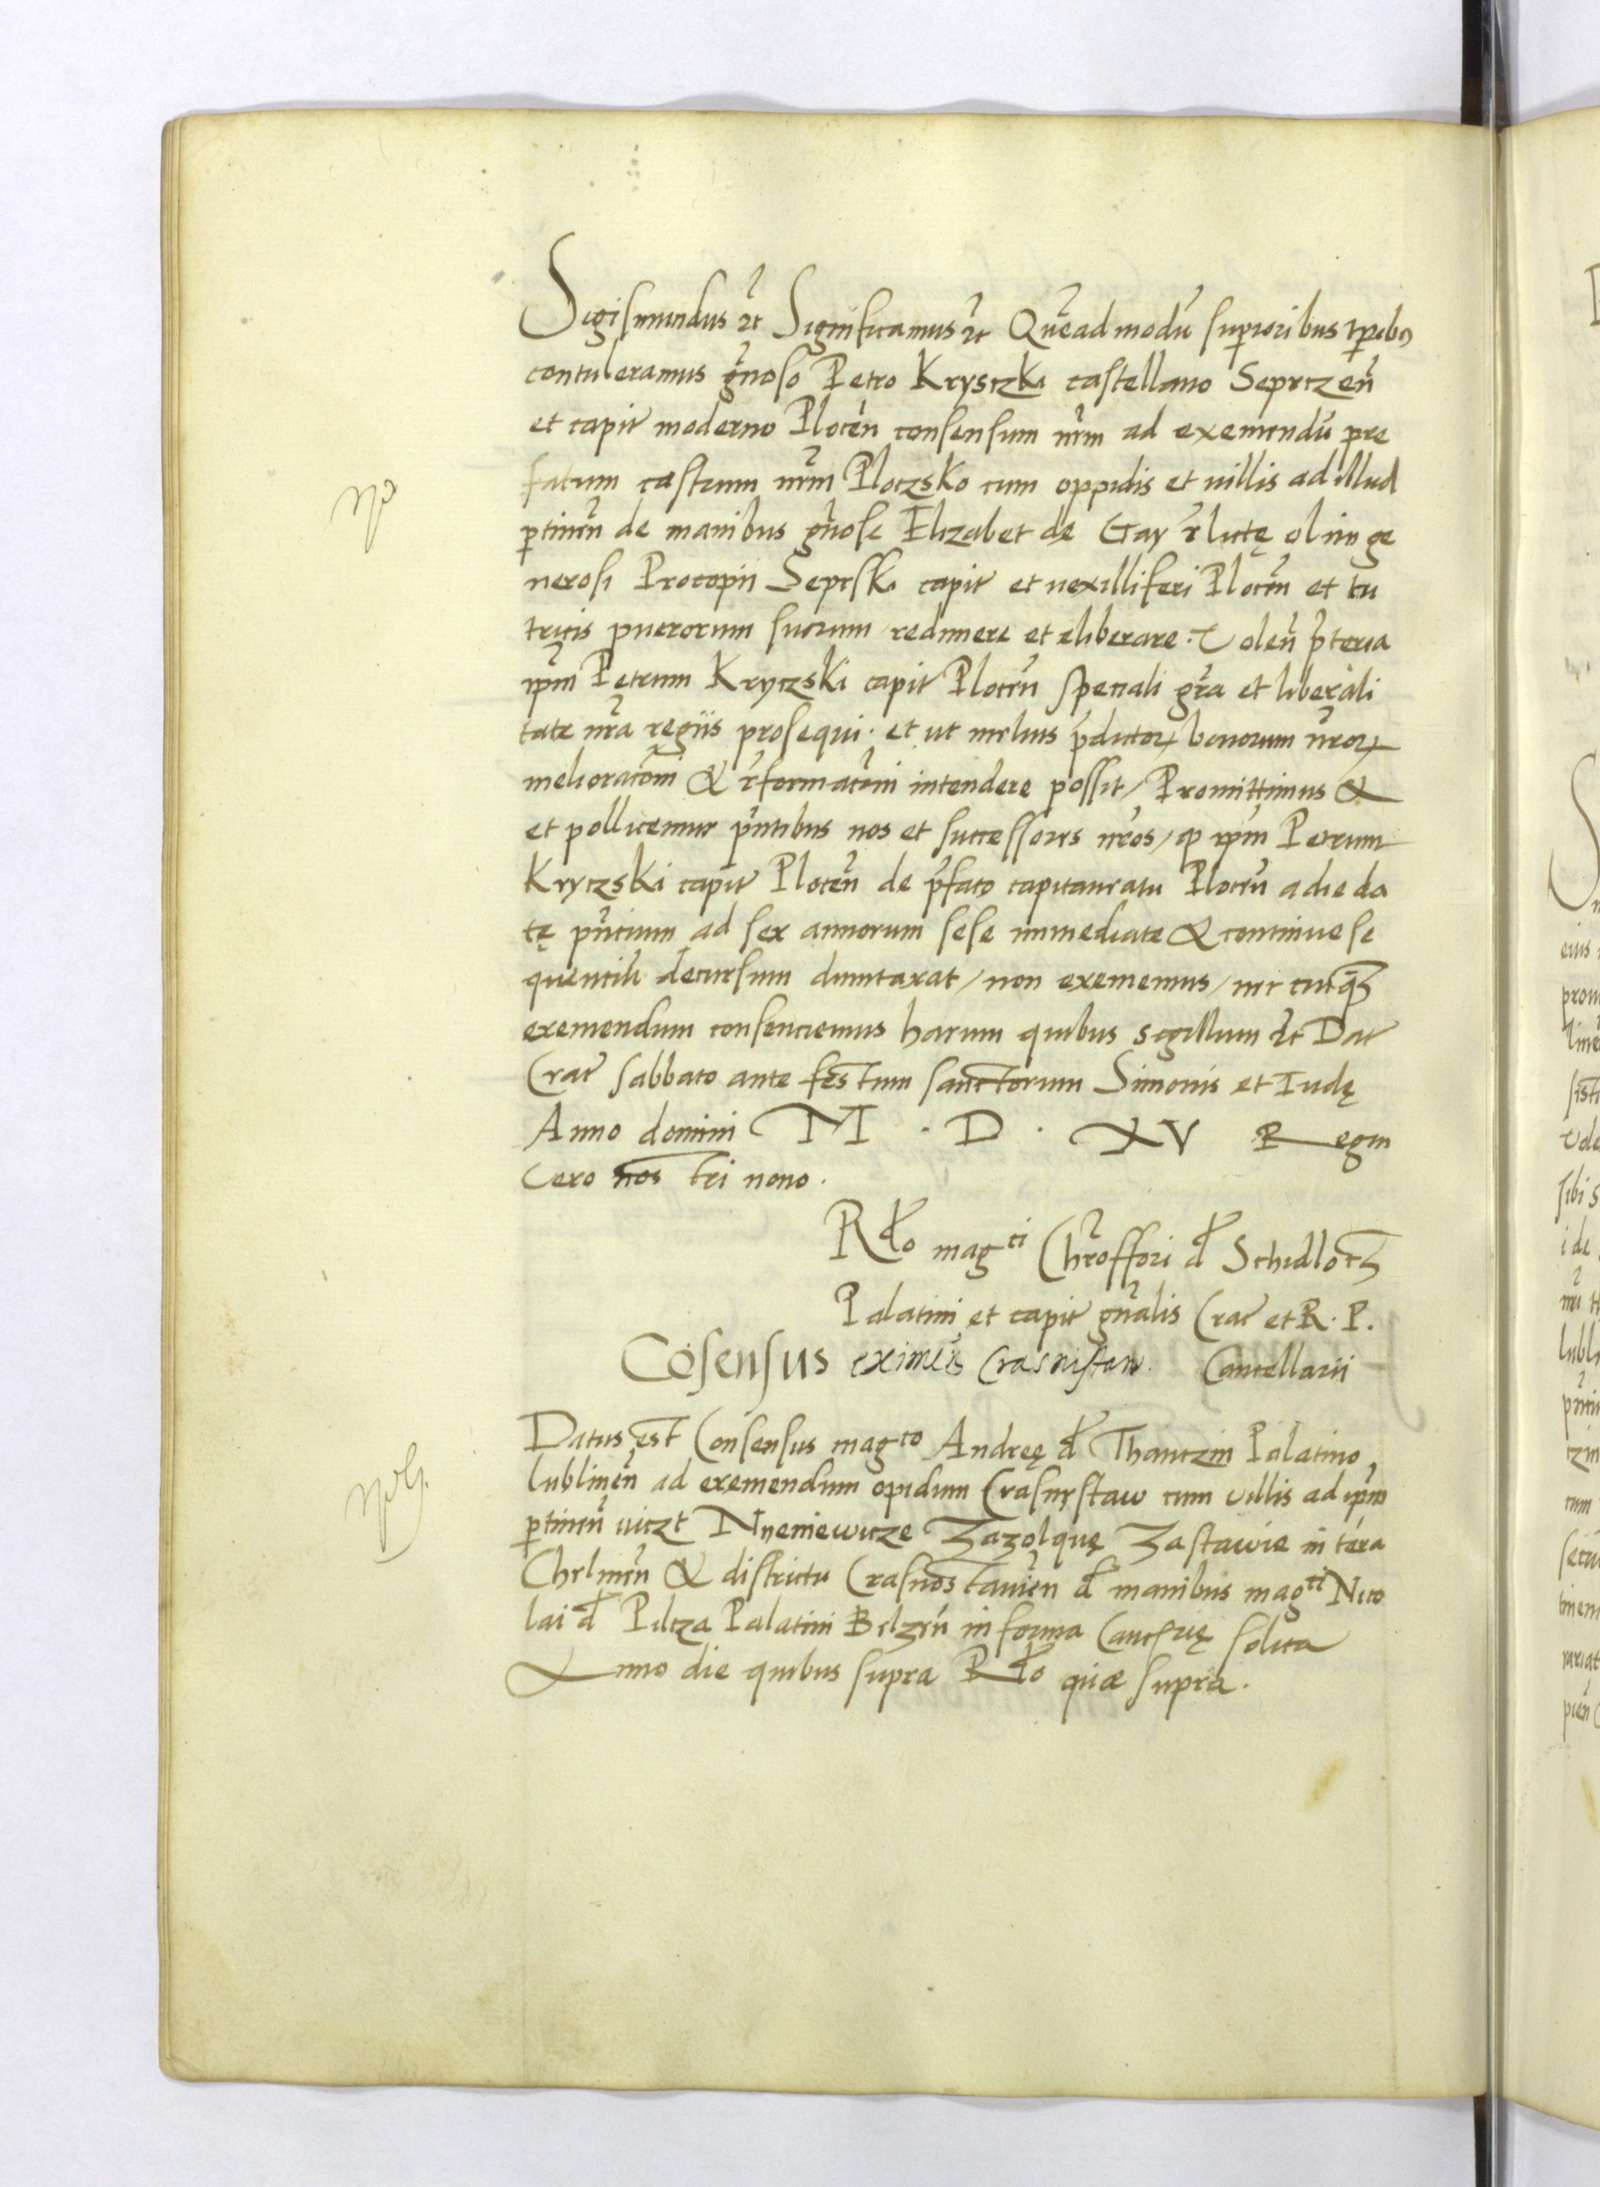 Sigismundus etc Significamus etc Quēadmodū superioribus tpibus
contuleramus gnoso Petro Krysczki castellano Seprczen
et capit moderno Plocen consensum nrm ad exemendū pre
fatum castrum nrm Ploczsko cum oppidis et villis ad illud
ptinen de manibus gnose Elizabet de Gay relictę olim ge
nerosi Procopii Seprski capit et vexilliferi Plocen et tu
tricis puerorum suorum redimere et eliberare. Volen preterea
ipm Petrum Kryczski capit Plocen speciali gra et liberali
tate nra regiis prosequi. et ut melius pdictor bonorum nror
melioracōni & reformacōni intendere possit / Promittimus &
et pollicemur pntibus nos et successores nros / qd ipm Petrum
Kryczski capit Plocen de prefato capitaneatu Plocen a die da
tę pncium ad sex annorum sese immediate & continue se
quenciū decursum dumtaxat / non exememus / nec cuiq
exemendum consenciemus harum quibus sigillum etc Dat
Crac sabbato ante festum sanctorum Simonis et Iudę
Anno domini M . D . XV Regni
vero nostri nono.
Rdo magci Chroffori de Schidlocz
Palatini et capit gnalis Crac et R. P.
Cōsensus eximēs Crasnistaw. Cancellarii
Datus est Consensus magco Andreę de Thanczin Palatino
lublinen ad exemendum opidum Crasnystaw cum villis ad ipm
ptinen viczt Nyeniewicze Zazolquę Zastawie in terra
Chelmen & districtu Crasnostavien de manibus magci Nico
lai de Pilcza Palatini Belzen in forma Cancrię solita
Anno die quibus supra Rdo quæ supra.